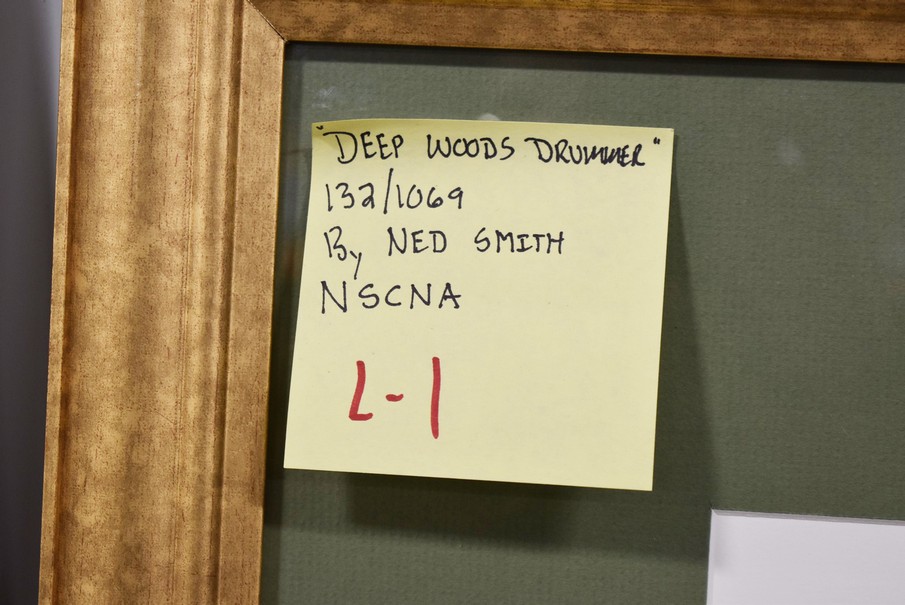 "DEEP WOODS DRUMMER"
132/1069
By NED SMITH
NSCNA
L-1